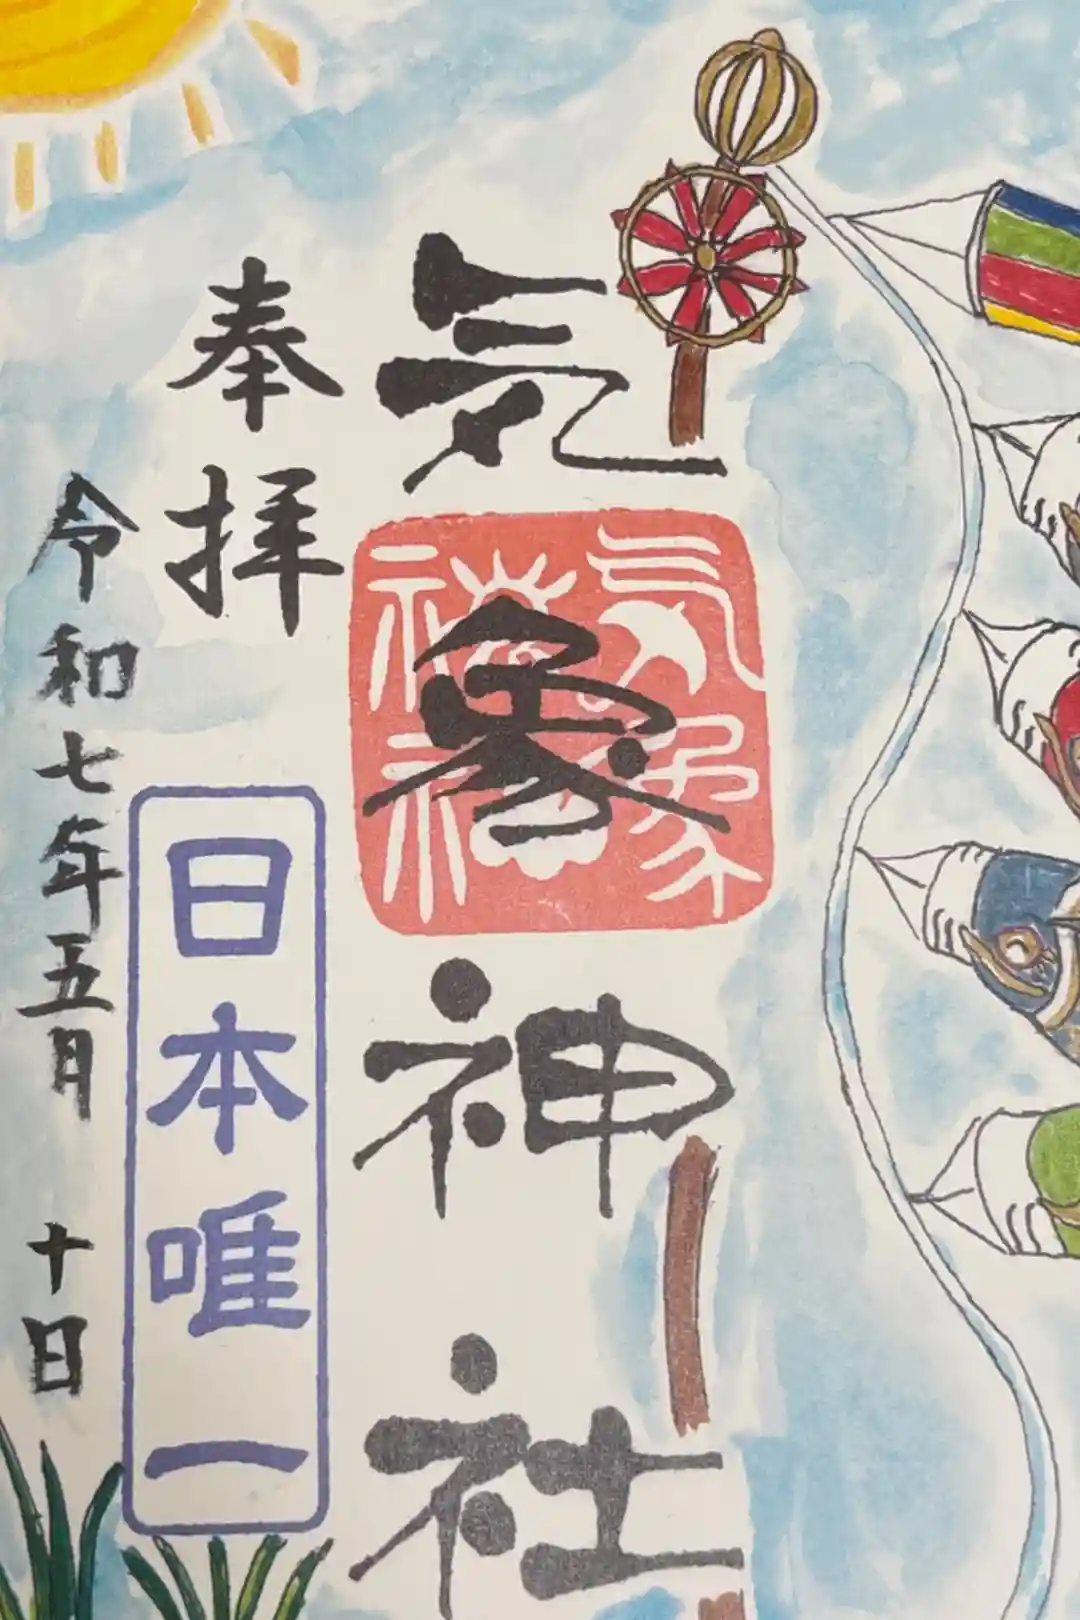 気象神社
気象
神社
奉拝
日本唯一
令和七年五月十日